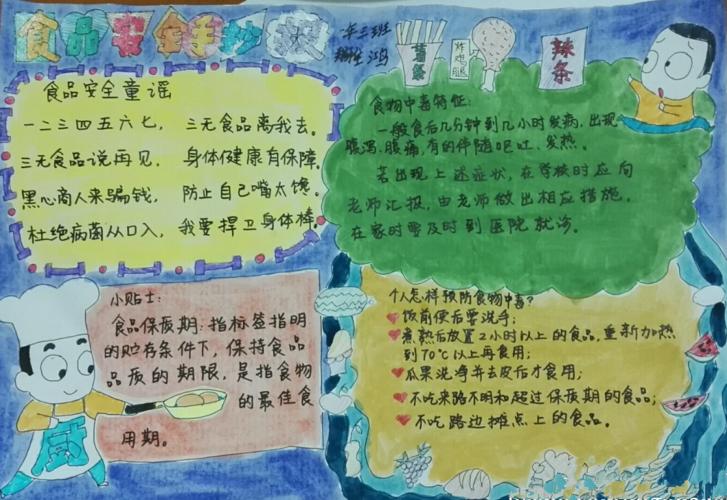 食品安全手抄报
年三班
食品安全童谣
一二三四五六七， 三无食品离我去。
三无食品说再见， 身体健康有保障。
黑心商人来骗钱， 防止自己嘴太馋。
杜绝病菌从口入， 我要捍卫身体棒。
薯条
炸鸡腿
辣条
食物中毒特征：
一般食后几分钟到几小时发病，出现
腹泻、腹痛，有的伴随呕吐、发热。
若出现上述症状，在学校时应向
老师汇报，由老师做出相应措施。
在家时要及时到医院就诊。
小贴士：
食品保质期：指标签指明
的贮存条件下，保持食品
品质的期限，是指食物
的最佳食
用期。
厨
个人怎样预防食物中毒？
饭前便后要洗手；
煮熟后放置2小时以上的食品，重新加热
到70℃以上再食用；
瓜果洗净并去皮后才食用；
不吃来路不明和超过保质期的食品；
不吃路边摊点上的食品。